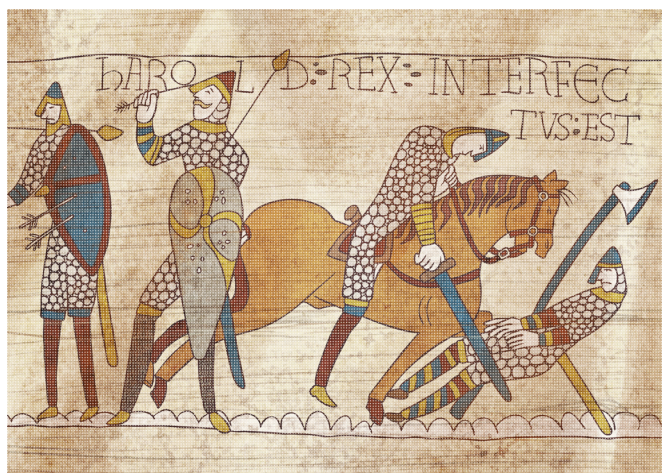 hAROLD:REX:INTERFEC
TVS:EST